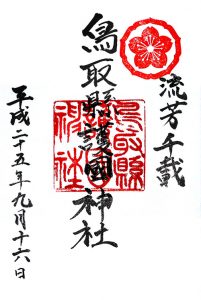 流芳千載
鳥取縣護國神社
鳥取縣
護國
神社
平成二十五年九月十六日